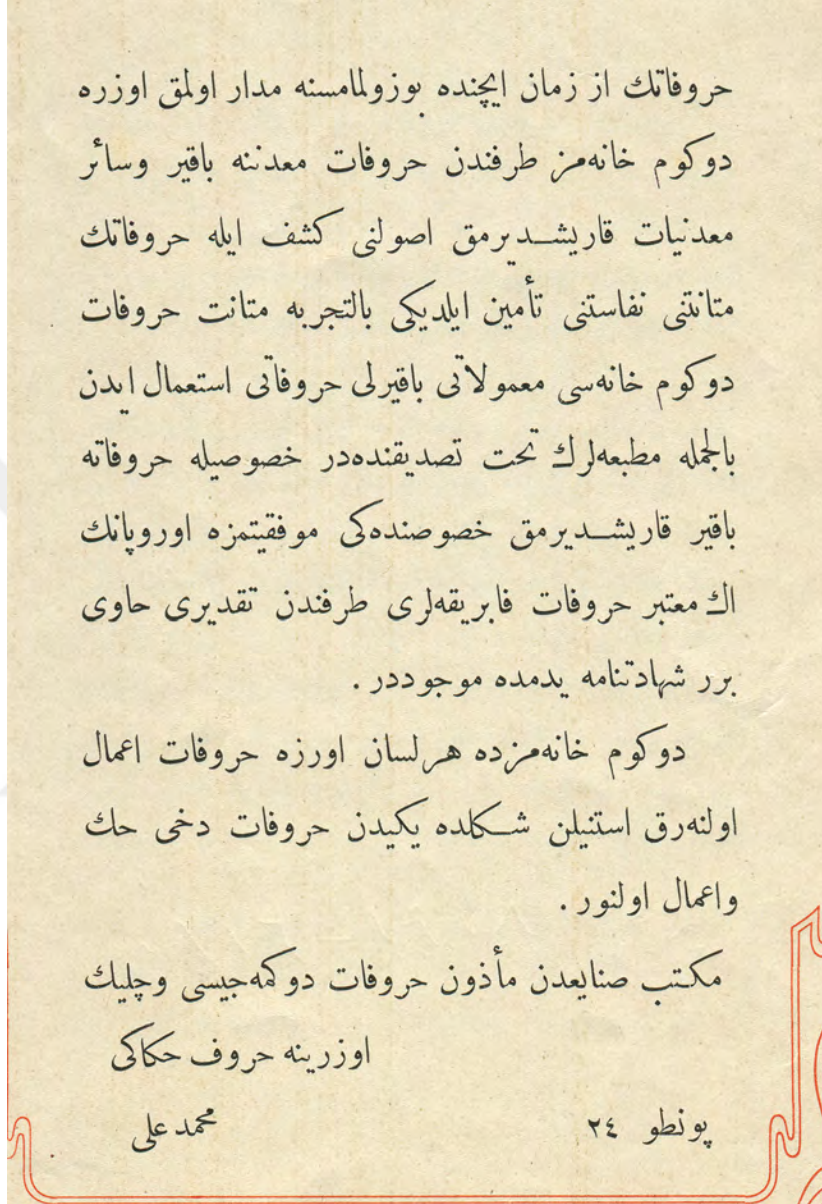 حروفاتك از زمان ایچنده بوزولمامسنه مدار اولمق اوزره
دوكوم خانه‌مز طرفندن حروفات معدننه باقیر وسائر
معدنیات قاریشدیرمق اصولنی كشف ایله حروفاتك
متانتنی نفاستنی تأمین ایلدیكی بالتجربه متانت حروفات
دوكوم خانه‌سی معمولاتی باقیرلی حروفاتی استعمال ایدن
بالجمله مطبعه‌لرك تحت تصدیقنده‌در خصوصیله حروفاته
باقیر قاریشدیرمق خصوصنده‌كی موفقیتمزه اوروپانك
اك معتبر حروفات فابریقه‌لری طرفندن تقدیری حاوی
برر شهادتنامه یدمده موجوددر .
دوكوم خانه‌مزده هرلسان اورزه حروفات اعمال
اولنه‌رق استنیلن شكلده یكیدن حروفات دخی حك
واعمال اولنور .
مكتب صنایعدن مأذون حروفات دوكمه‌جیسی وچلیك
اوزرینه حروف حكاكی
پونطو ٢٤ محمد علی